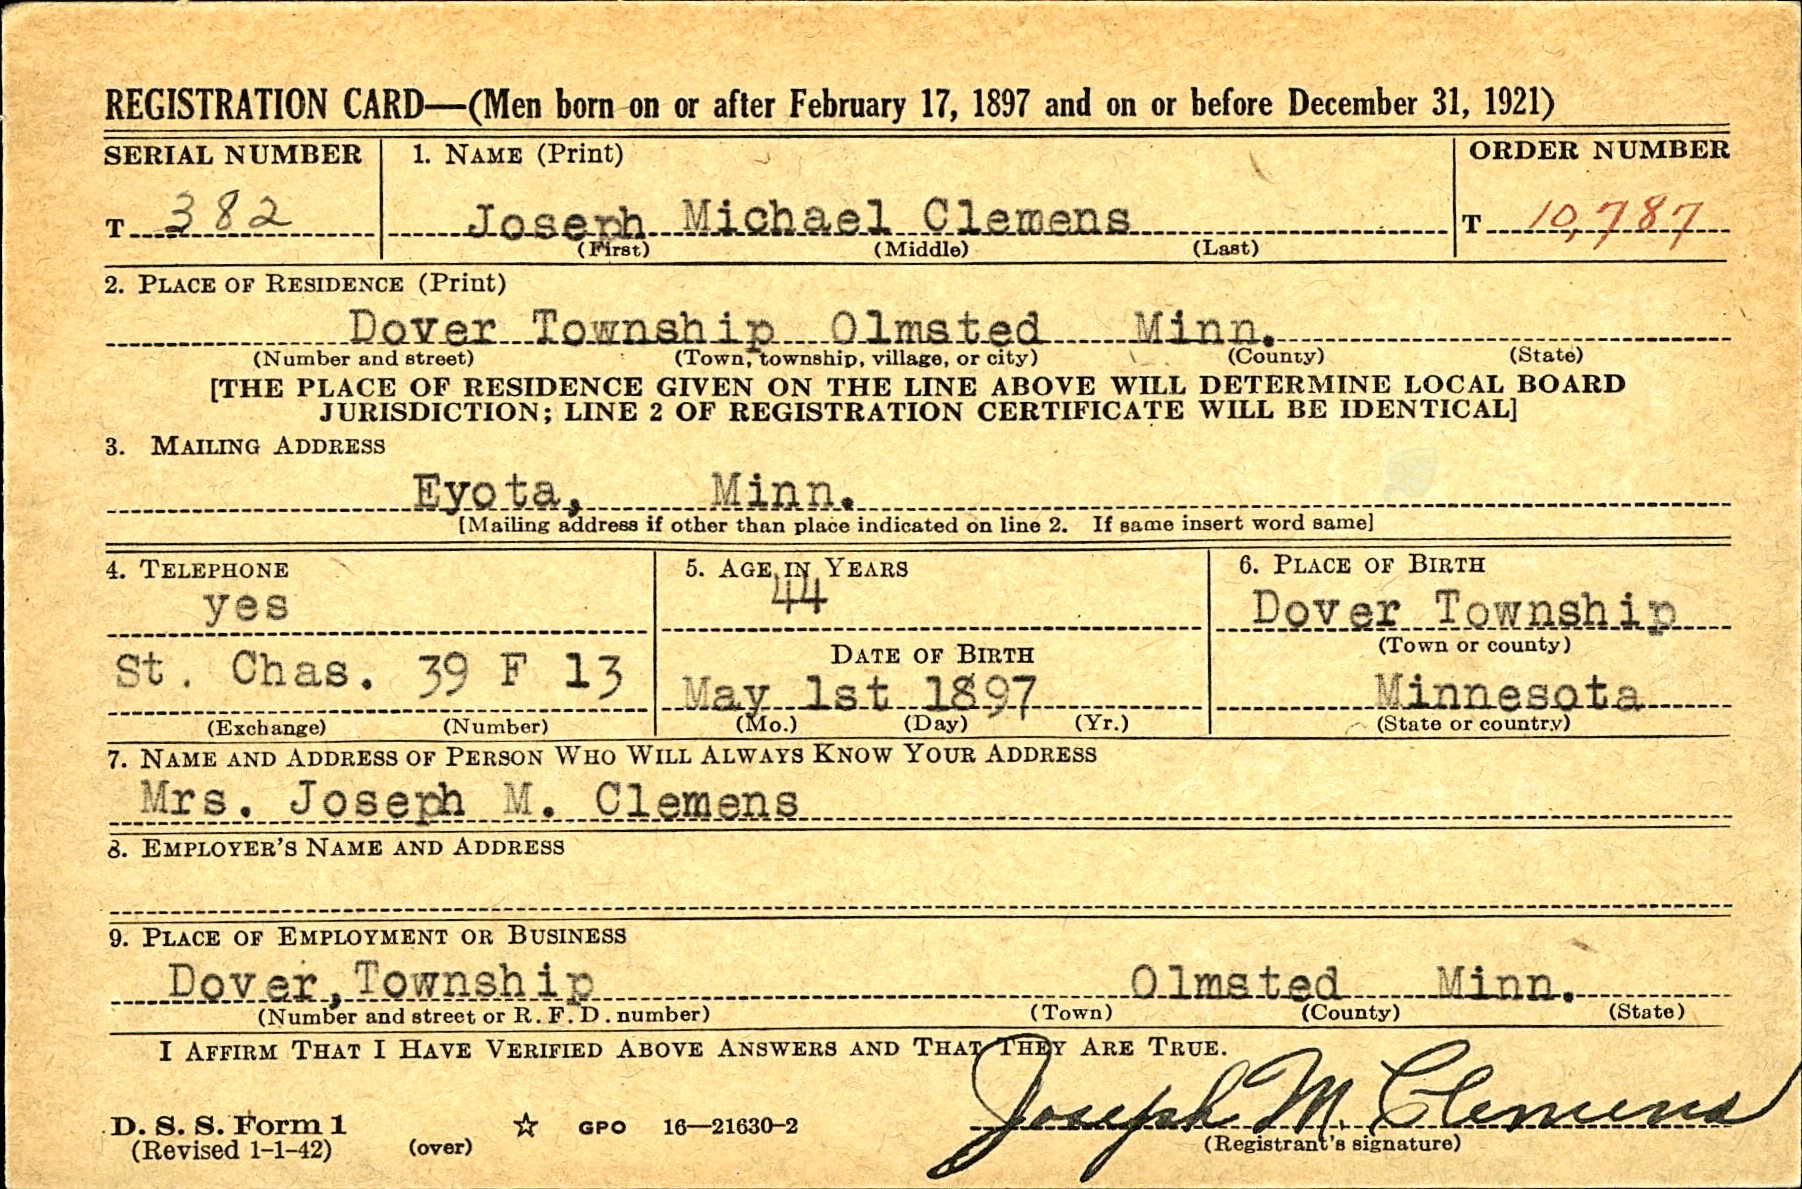 REGISTRATION CARD—(Men born on or after February 17, 1897 and on or before December 31, 1921)
SERIAL NUMBER 1. NAME (Print) ORDER NUMBER
T 382 Joseph Michael Clemens T 10,787
(First) (Middle) (Last)
2. PLACE OF RESIDENCE (Print)
Dover Township Olmsted Minn.
(Number and street) (Town, township, village, or city) (County) (State)
[THE PLACE OF RESIDENCE GIVEN ON THE LINE ABOVE WILL DETERMINE LOCAL BOARD
JURISDICTION; LINE 2 OF REGISTRATION CERTIFICATE WILL BE IDENTICAL]
3. MAILING ADDRESS
Eyota, Minn.
[Mailing address if other than place indicated on line 2. If same insert word same]
4. TELEPHONE 5. AGE IN YEARS 6. PLACE OF BIRTH
yes 44 Dover Township
(Town or county)
DATE OF BIRTH
St. Chas. 39 F 13 May 1st 1897 Minnesota
(Exchange) (Number) (Mo.) (Day) (Yr.) (State or country)
7. NAME AND ADDRESS OF PERSON WHO WILL ALWAYS KNOW YOUR ADDRESS
Mrs. Joseph M. Clemens
8. EMPLOYER'S NAME AND ADDRESS
9. PLACE OF EMPLOYMENT OR BUSINESS
Dover, Township Olmsted Minn.
(Number and street or R. F. D. number) (Town) (County) (State)
I AFFIRM THAT I HAVE VERIFIED ABOVE ANSWERS AND THAT THEY ARE TRUE.
Joseph M. Clemens
D. S. S. Form 1 ☆ GPO 16—21630-2
(Revised 1-1-42) (over) (Registrant's signature)